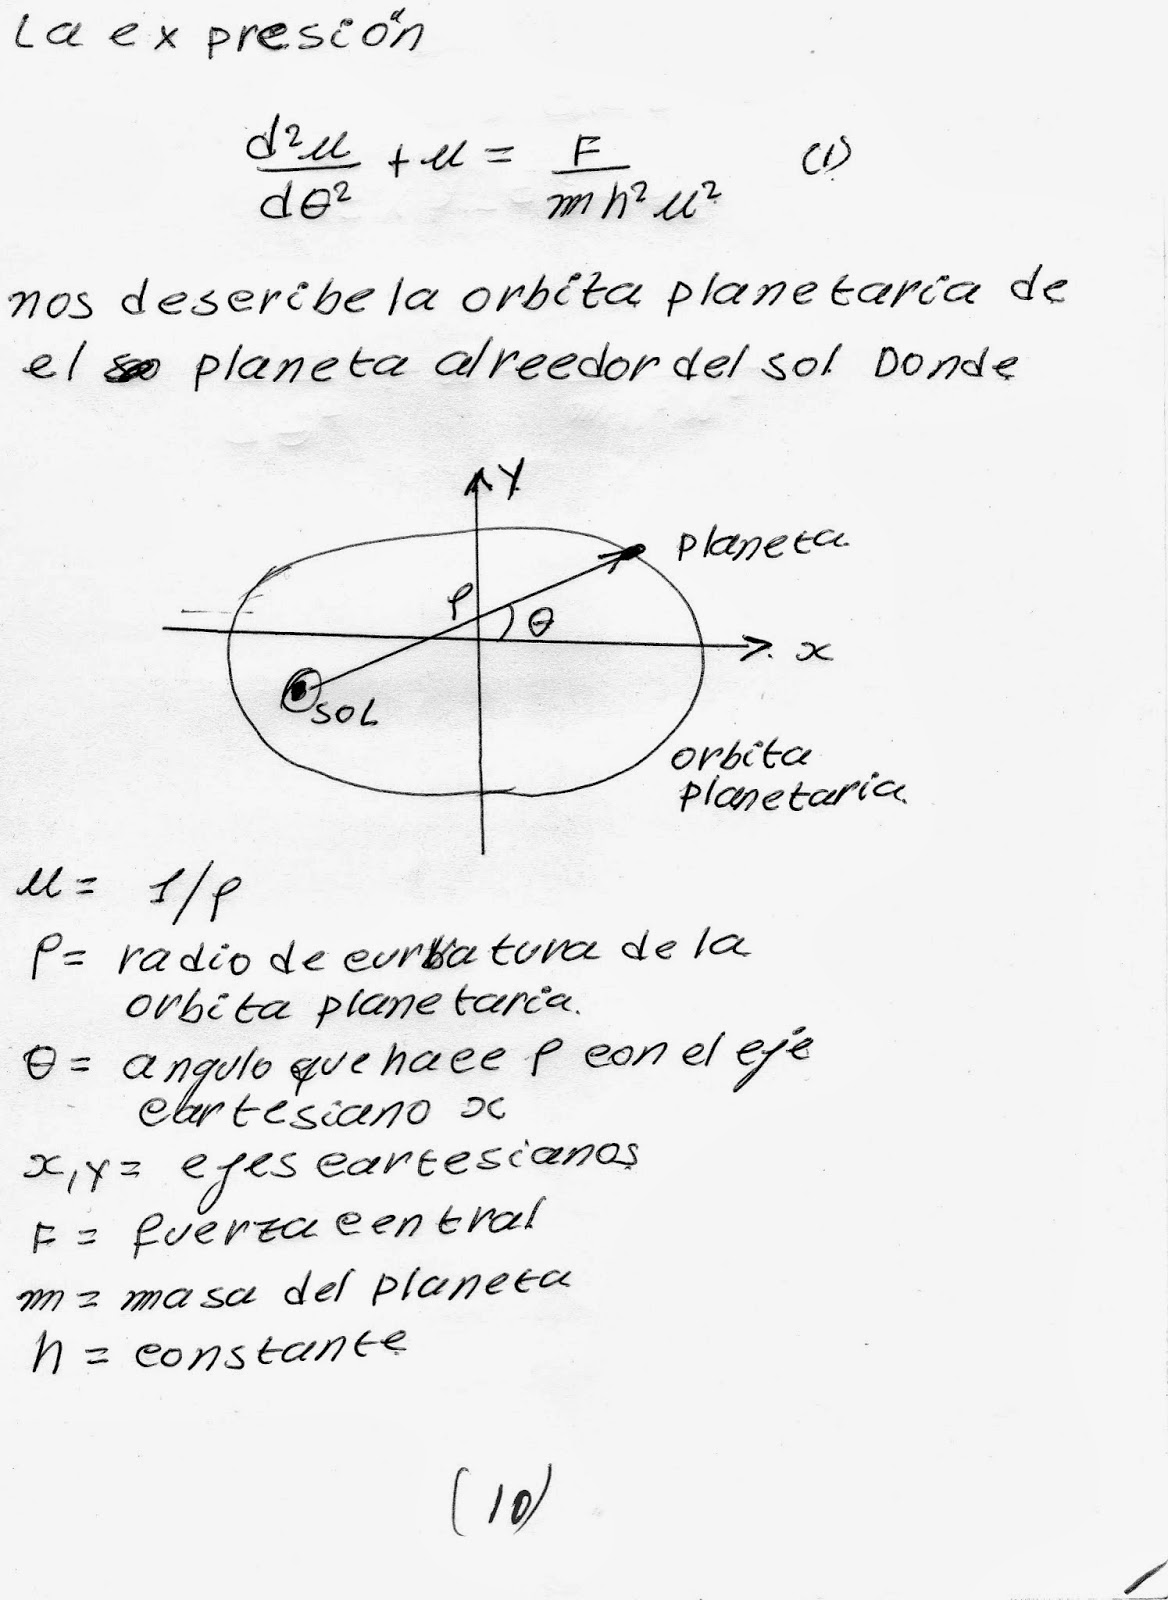 La expresión
d²u/dθ² + u = F/mh²u² (1)
nos describe la orbita planetaria de
el planeta alreedor del sol Donde
Y
planeta
ρ
θ
x
SOL
orbita
planetaria.
u = 1/ρ
ρ = radio de curbatura de la
orbita planetaria.
θ = angulo que hace ρ con el eje
cartesiano x
x,y = ejes cartesianos
F = fuerza central
m = masa del planeta
h = constante
(10)